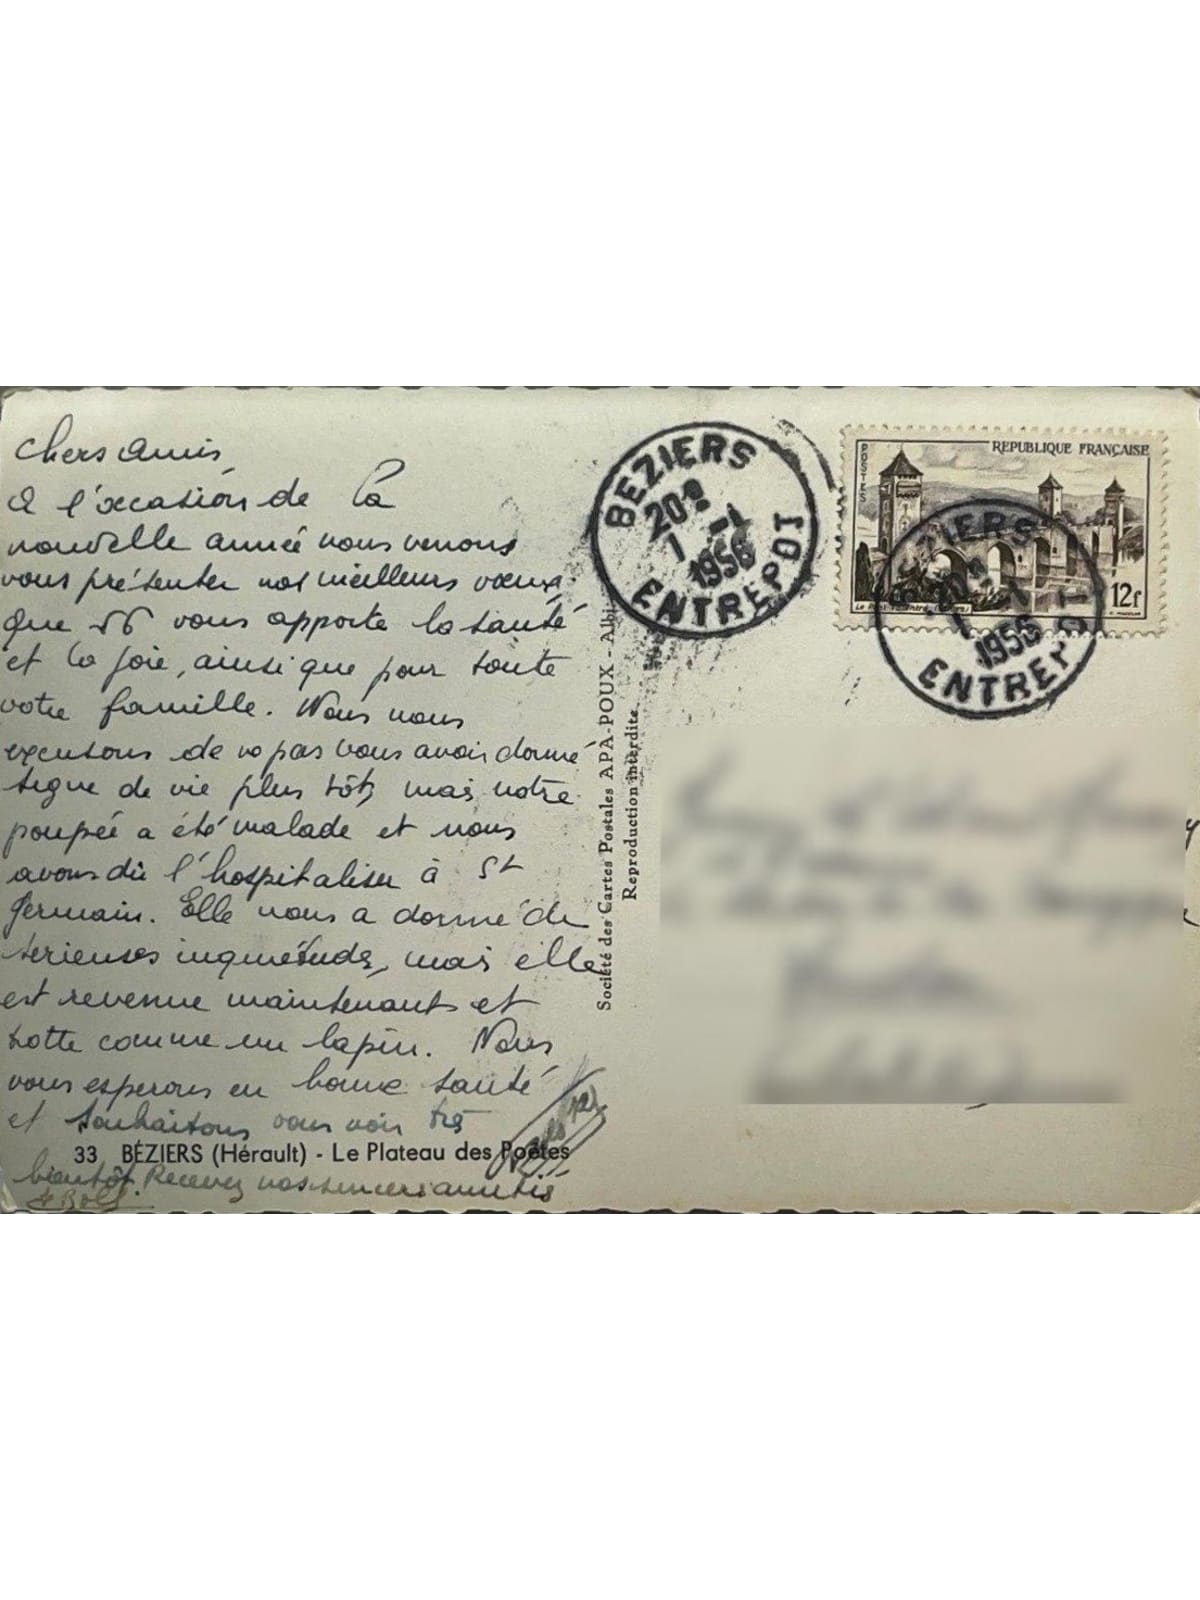 Chers amis,
A l'occasion de la
nouvelle année nous venons
vous présenter nos meilleurs vœux,
que 56 vous apporte la santé
et la joie, ainsi que pour toute
votre famille. Nous nous
excusons de pas vous avoir donné
signe de vie plus tôt, mais notre
poupée a été malade et nous
avons dû l'hospitaliser à St
Germain. Elle nous a donné de
serieuses inquiétudes, mais elle
est revenue maintenant et
trotte comme un lapin. Nous
vous esperons en bonne santé
et souhaitons vous voir très
bientôt. Recevez nos sinceres amitiés
33 BÉZIERS (Hérault) - Le Plateau des Poètes
Société des Cartes Postales APA-POUX - Albi
Reproduction interdite
BEZIERS
20
1 - 1
1956
ENTREPOT
REPUBLIQUE FRANÇAISE
POSTES
12f
ZIERS
1956
ENTREPOT